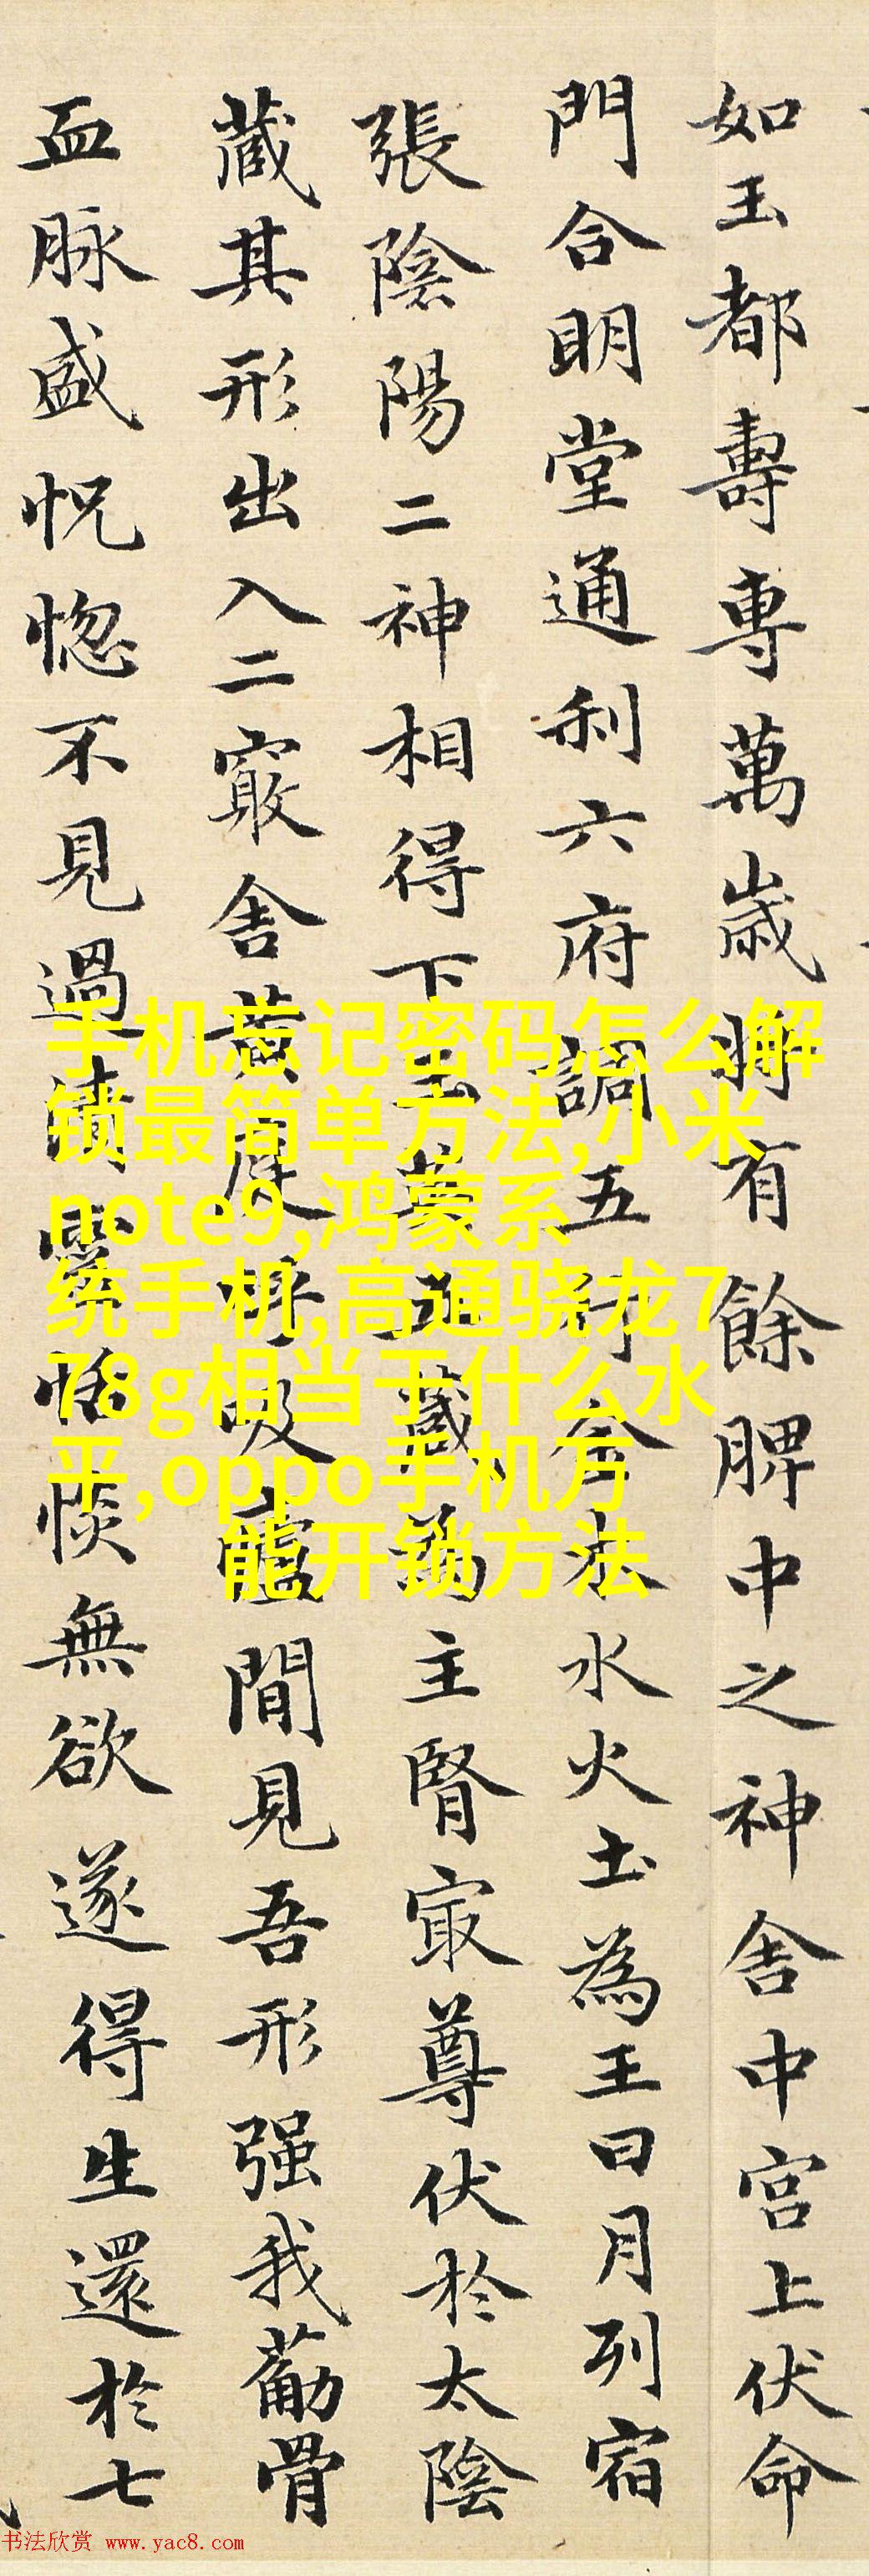 如玉都壽專萬歲將有餘脾中之神舍中宮上伏命
門合明堂通利六府調五行金木水火土為王日月列宿
張陰陽二神相得下玉英五藏為主腎寂尊伏於太陰
藏其形出入二竅舍黃庭呼吸廬間見吾形强我葡骨
血脉盛怳惚不見過清靈恬惔無欲遂得生還於七
手机忘记密码怎么解
锁最简单方法,小米
note9,鸿蒙系
统手机,高通骁龙7
78g相当于什么水
平,oppo手机万
能开锁方法
书法欣赏 www.yac8.com